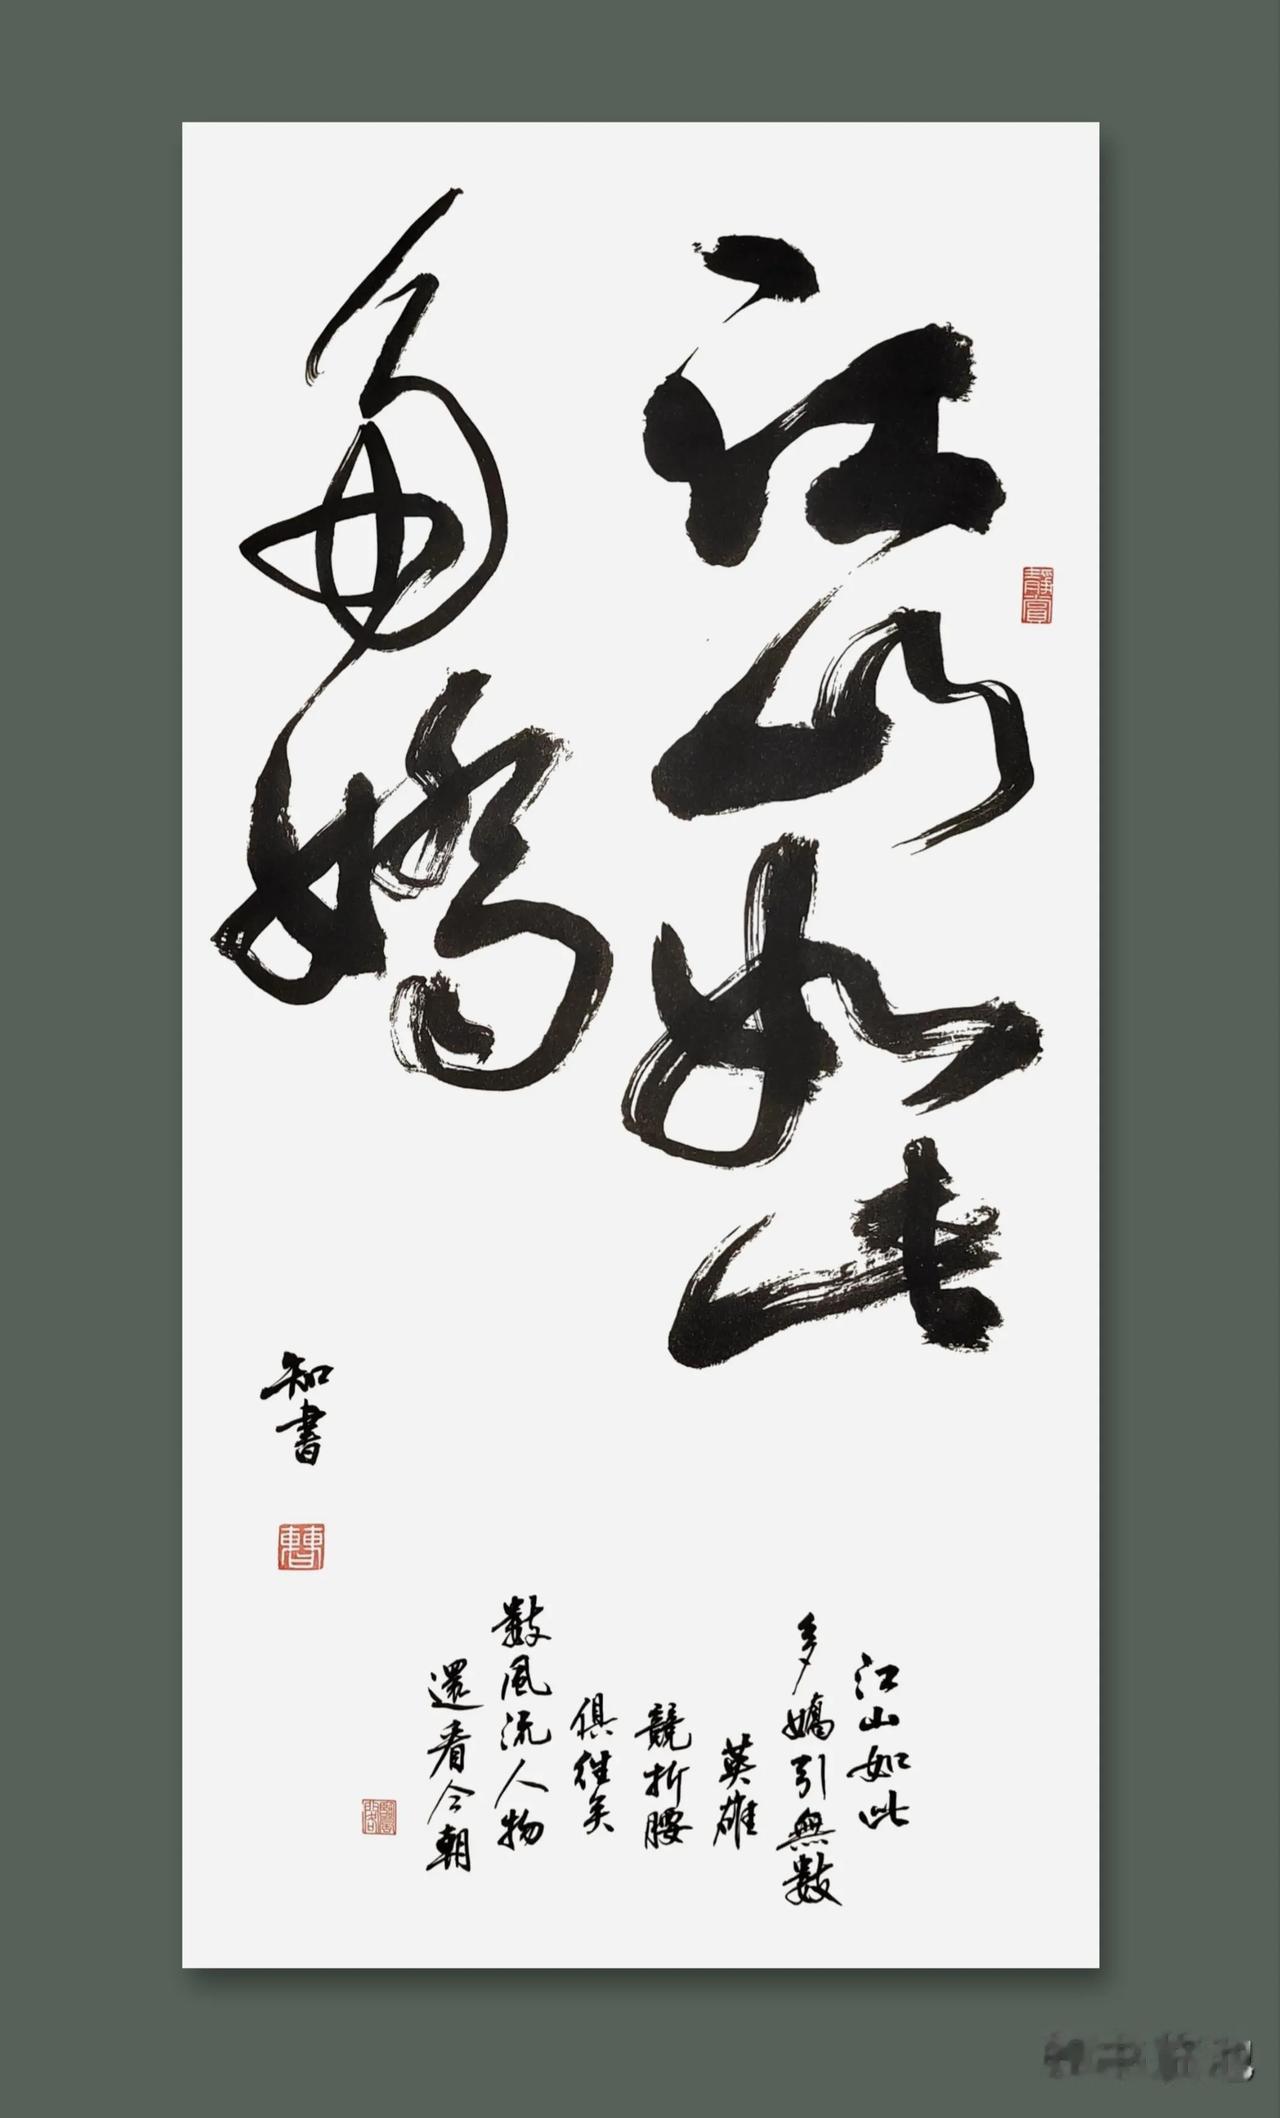 江山如此
多嬌
知書
江山如此
多嬌引無數
英雄
競折腰
俱往矣
數風流人物
還看今朝